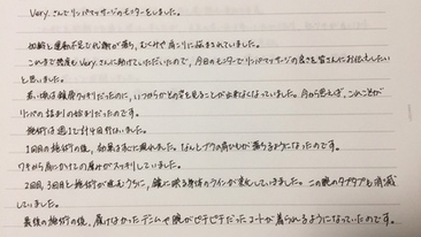 Very.さんでリンパマッサージのモニターをしました。
加齢と運動不足で代謝が落ち、むくみや肩こりに悩まされていました。
これまで幾度もVery.さんに助けていただいたので、今回のモニターでリンパマッサージの良さを皆さんにお伝えしたい
と思いました。
若い頃は鎖骨クッキリだったのに、いつからかその姿を見ることが出来なくなっていました。今から思えば、これこそが
リンパの詰まりの始まりだったのです。
施術は週1で計4回行ないました。
1回目の施術の後、効果はすぐに現れました。なんとブラの肩ひもが落ちるようになったのです。
ワキから肩にかけての厚みがスッキリしていました。
2回目、3回目と施術が進むうちに、鏡に映る身体のラインが変化していきました。この腕のタプタプも消滅
していました。
最後の施術の後、履けなかったデニムや腕がピチピチだったコートが着られるようになっていたのです。